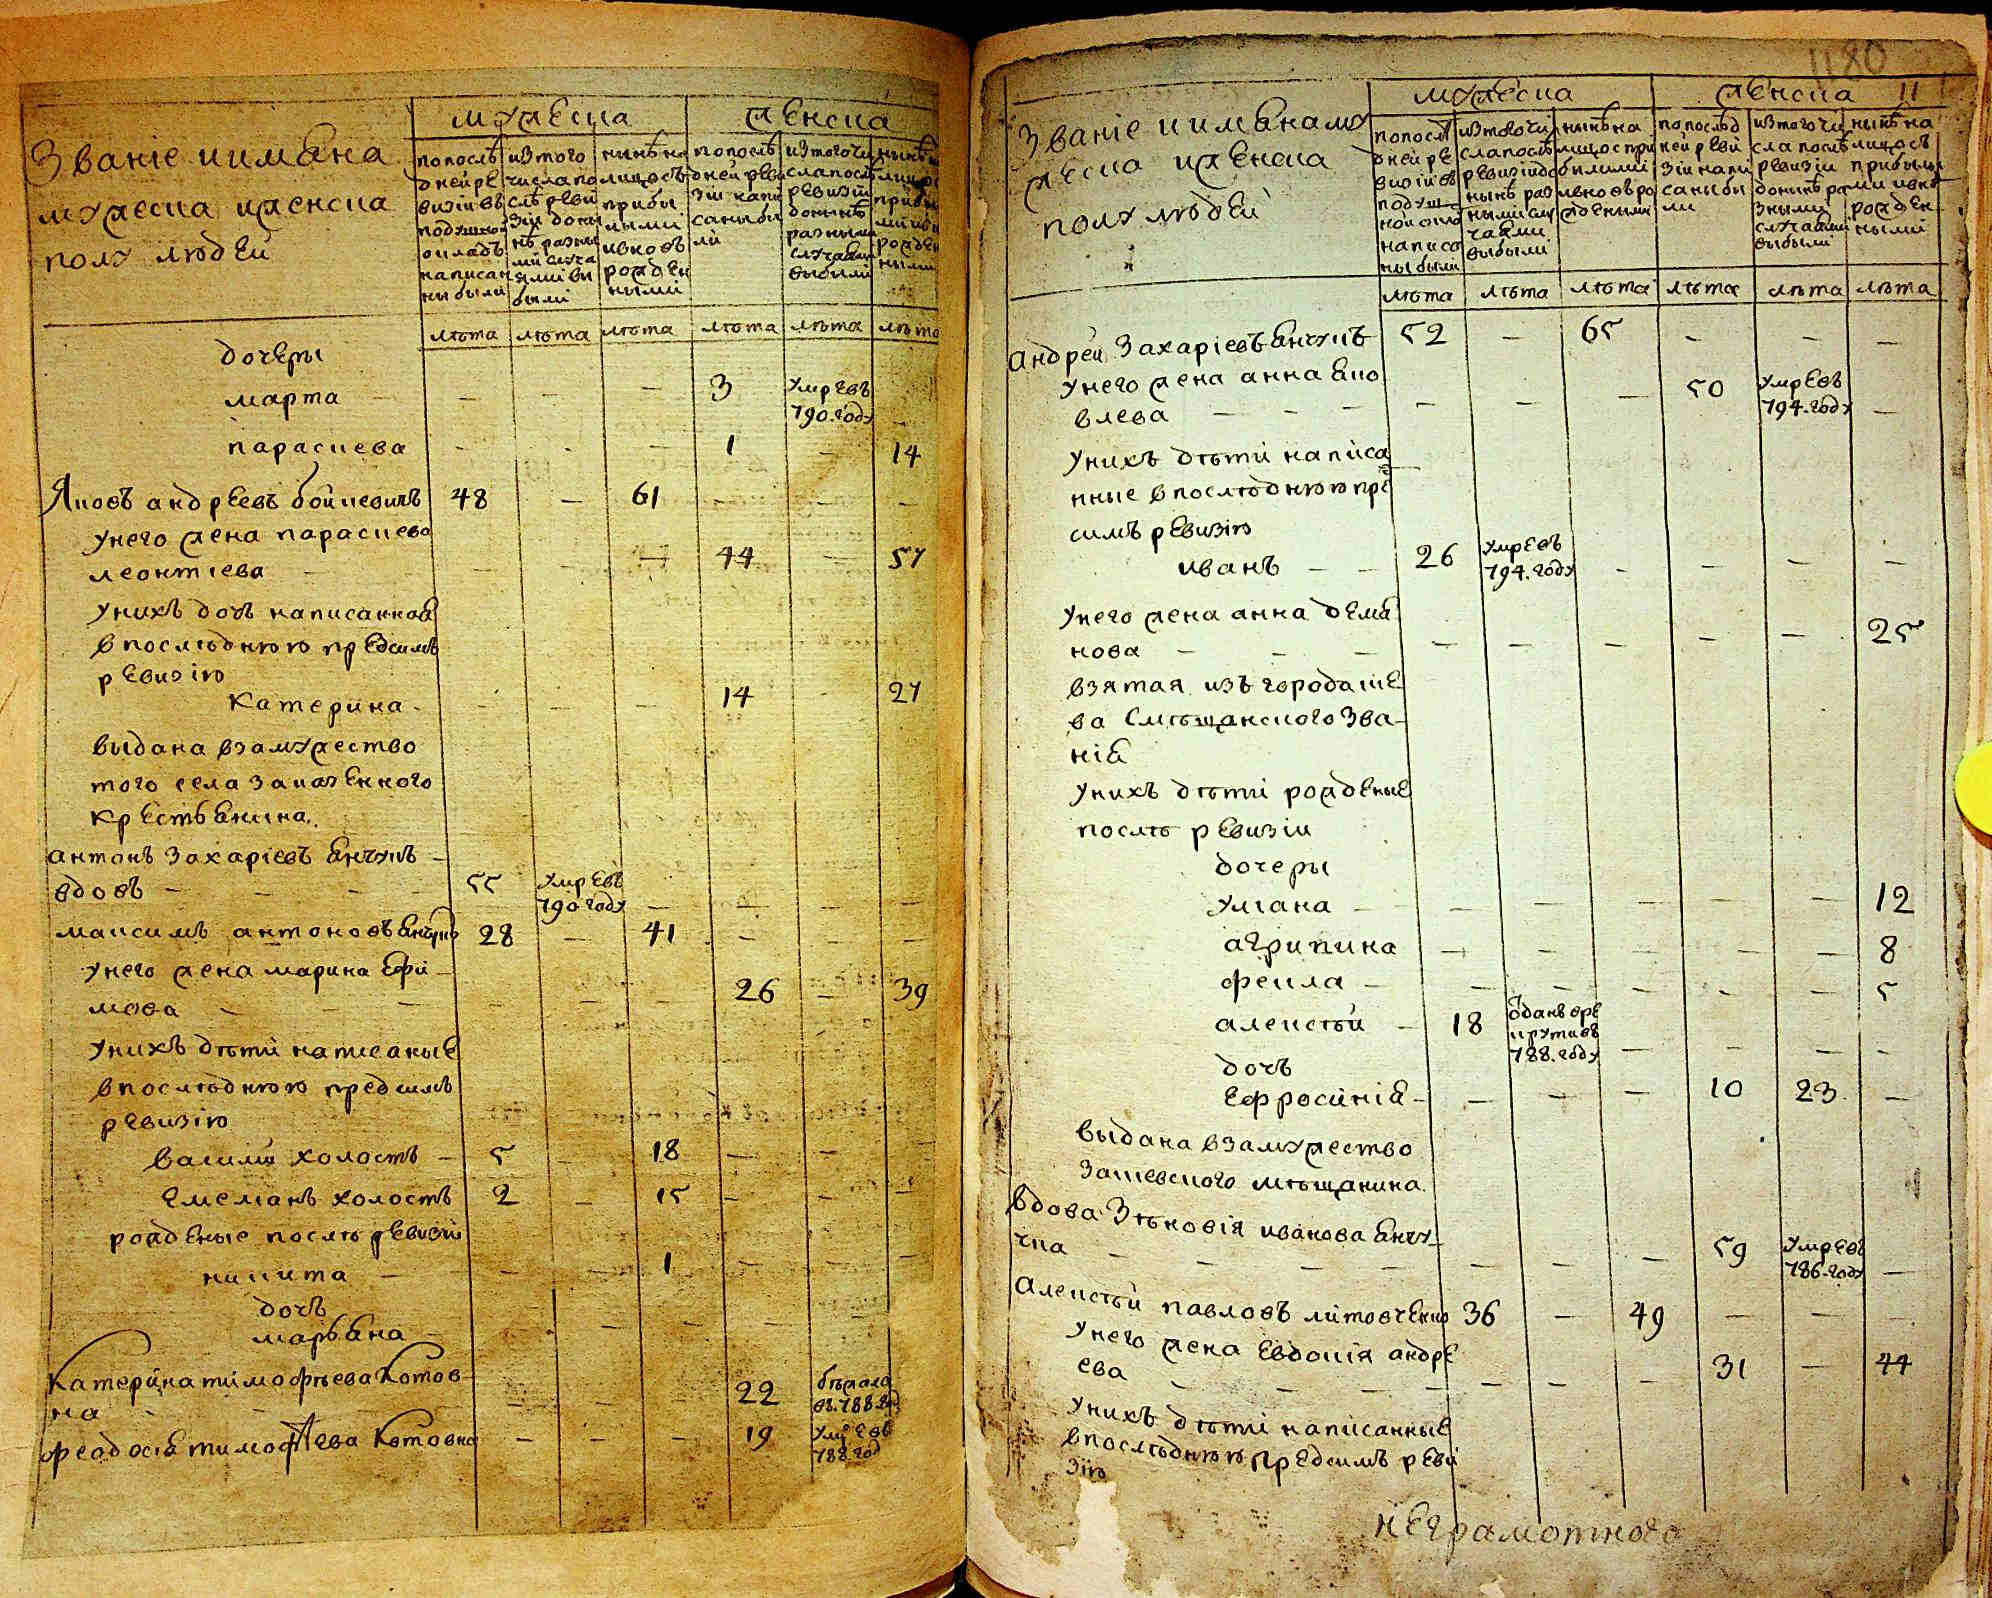 мужеска женска
Званіе иимяна
мужеска иженска
полу людей
попослѣ
дней ре
визіи въ
подушной
окладъ
написан
ны были
изтого
числа по
слѣ реви
зіи доны
нѣ разны
ми случа
ями вы
были
нынѣ на
лицосъ
прибы
лыми
ивновъ
рожден
ными
попослѣ
дней реви
зіи напи
саны бы
ли
изтого чи
сла послѣ
ревизіи
донынѣ
разными
случаями
выбыли
лѣта лѣта лѣта лѣта лѣта лѣта
дочеры
марта — — — 3 умре въ
790. году —
параскева — — — 1 — 14
Яковъ андреевъ бойкевичъ 48 — 61 — — —
унего жена параскева
леонтіева — — — 44 — 57
унихъ дочъ написанная
впослѣднюю предсимъ
ревизію
катерина — — — 14 — 27
выдана взамужество
того села заказенного
крестьянина
антонъ Захаріевъ Янчукъ —
вдовъ — 55 умре въ
790 году — — — —
максимъ антоновъ Янчукъ 28 — 41 — — —
унего жена марина Ефи
мова — — — — 26 — 39
унихъ дѣти написаные
впослѣднюю предсимъ
ревизію
василій холостъ — 5 — 18 — —
емелянъ холостъ 2 — 15 — — —
рожденые послѣ ревизіи
никита — — — 1 — — —
дочъ
марьяна — — — — —
Катерина тимофѣева Котов
на — — — 22 бѣжала
въ 788.
феодосія тимофѣева Котовна — — — 19 умре въ
788 год
1180
мужеска женска 11
Званіе иимянаму
жеска иженска
полу людей
попослѣ
дней ре
визіи въ
подуш
ной окла
написа
ны были
изтого чи
сла послѣ
ревизіи до
нынѣ раз
ными слу
чаями
выбыли
нынѣ на
лицос при
былими
ивновъ ро
ждеными
попослѣд
ней реви
зіи напи
саны бы
ли
изтого чи
сла послѣ
ревизіи
донынѣ ра
зными
случаями
выбыли
нынѣ на
лицосъ
прибылы
ми ивно
рожден
ными
лѣта лѣта лѣта лѣта лѣта лѣта
андрей Захаріевъ Янчукъ 52 — 65 — — —
унего жена анна яко
влева — — — — — — 50 умре въ
794. году —
унихъ дѣти написа
нные впослѣднюю пре
симъ ревизію
иванъ — — 26 умре въ
794. году — — — —
унего жена анна демя
нова — — — — — — — — 25
взятая изъ города ше
ва смѣщанского зва
нія
унихъ дѣти рожденые
послѣ ревизіи
дочеры
уляна — — — — — — 12
агрипина — — — — — 8
фекла — — — — — — 5
алексѣй — 18 отданъ вре
крути въ
788. году — — — —
дочъ
Ефросинія — — — — 10 23 —
выдана взамужество
зашевского мѣщанина
вдова Зѣновія иванова Янчу
чка — — — — — — 59 умре въ
786. году —
алексѣй павловъ литовченко 36 — 49 — — —
унего жена евдокія андре
ева — — — — — — 31 — 44
унихъ дѣти написанные
впослѣднюю предсимъ реви
зію
неграмотного